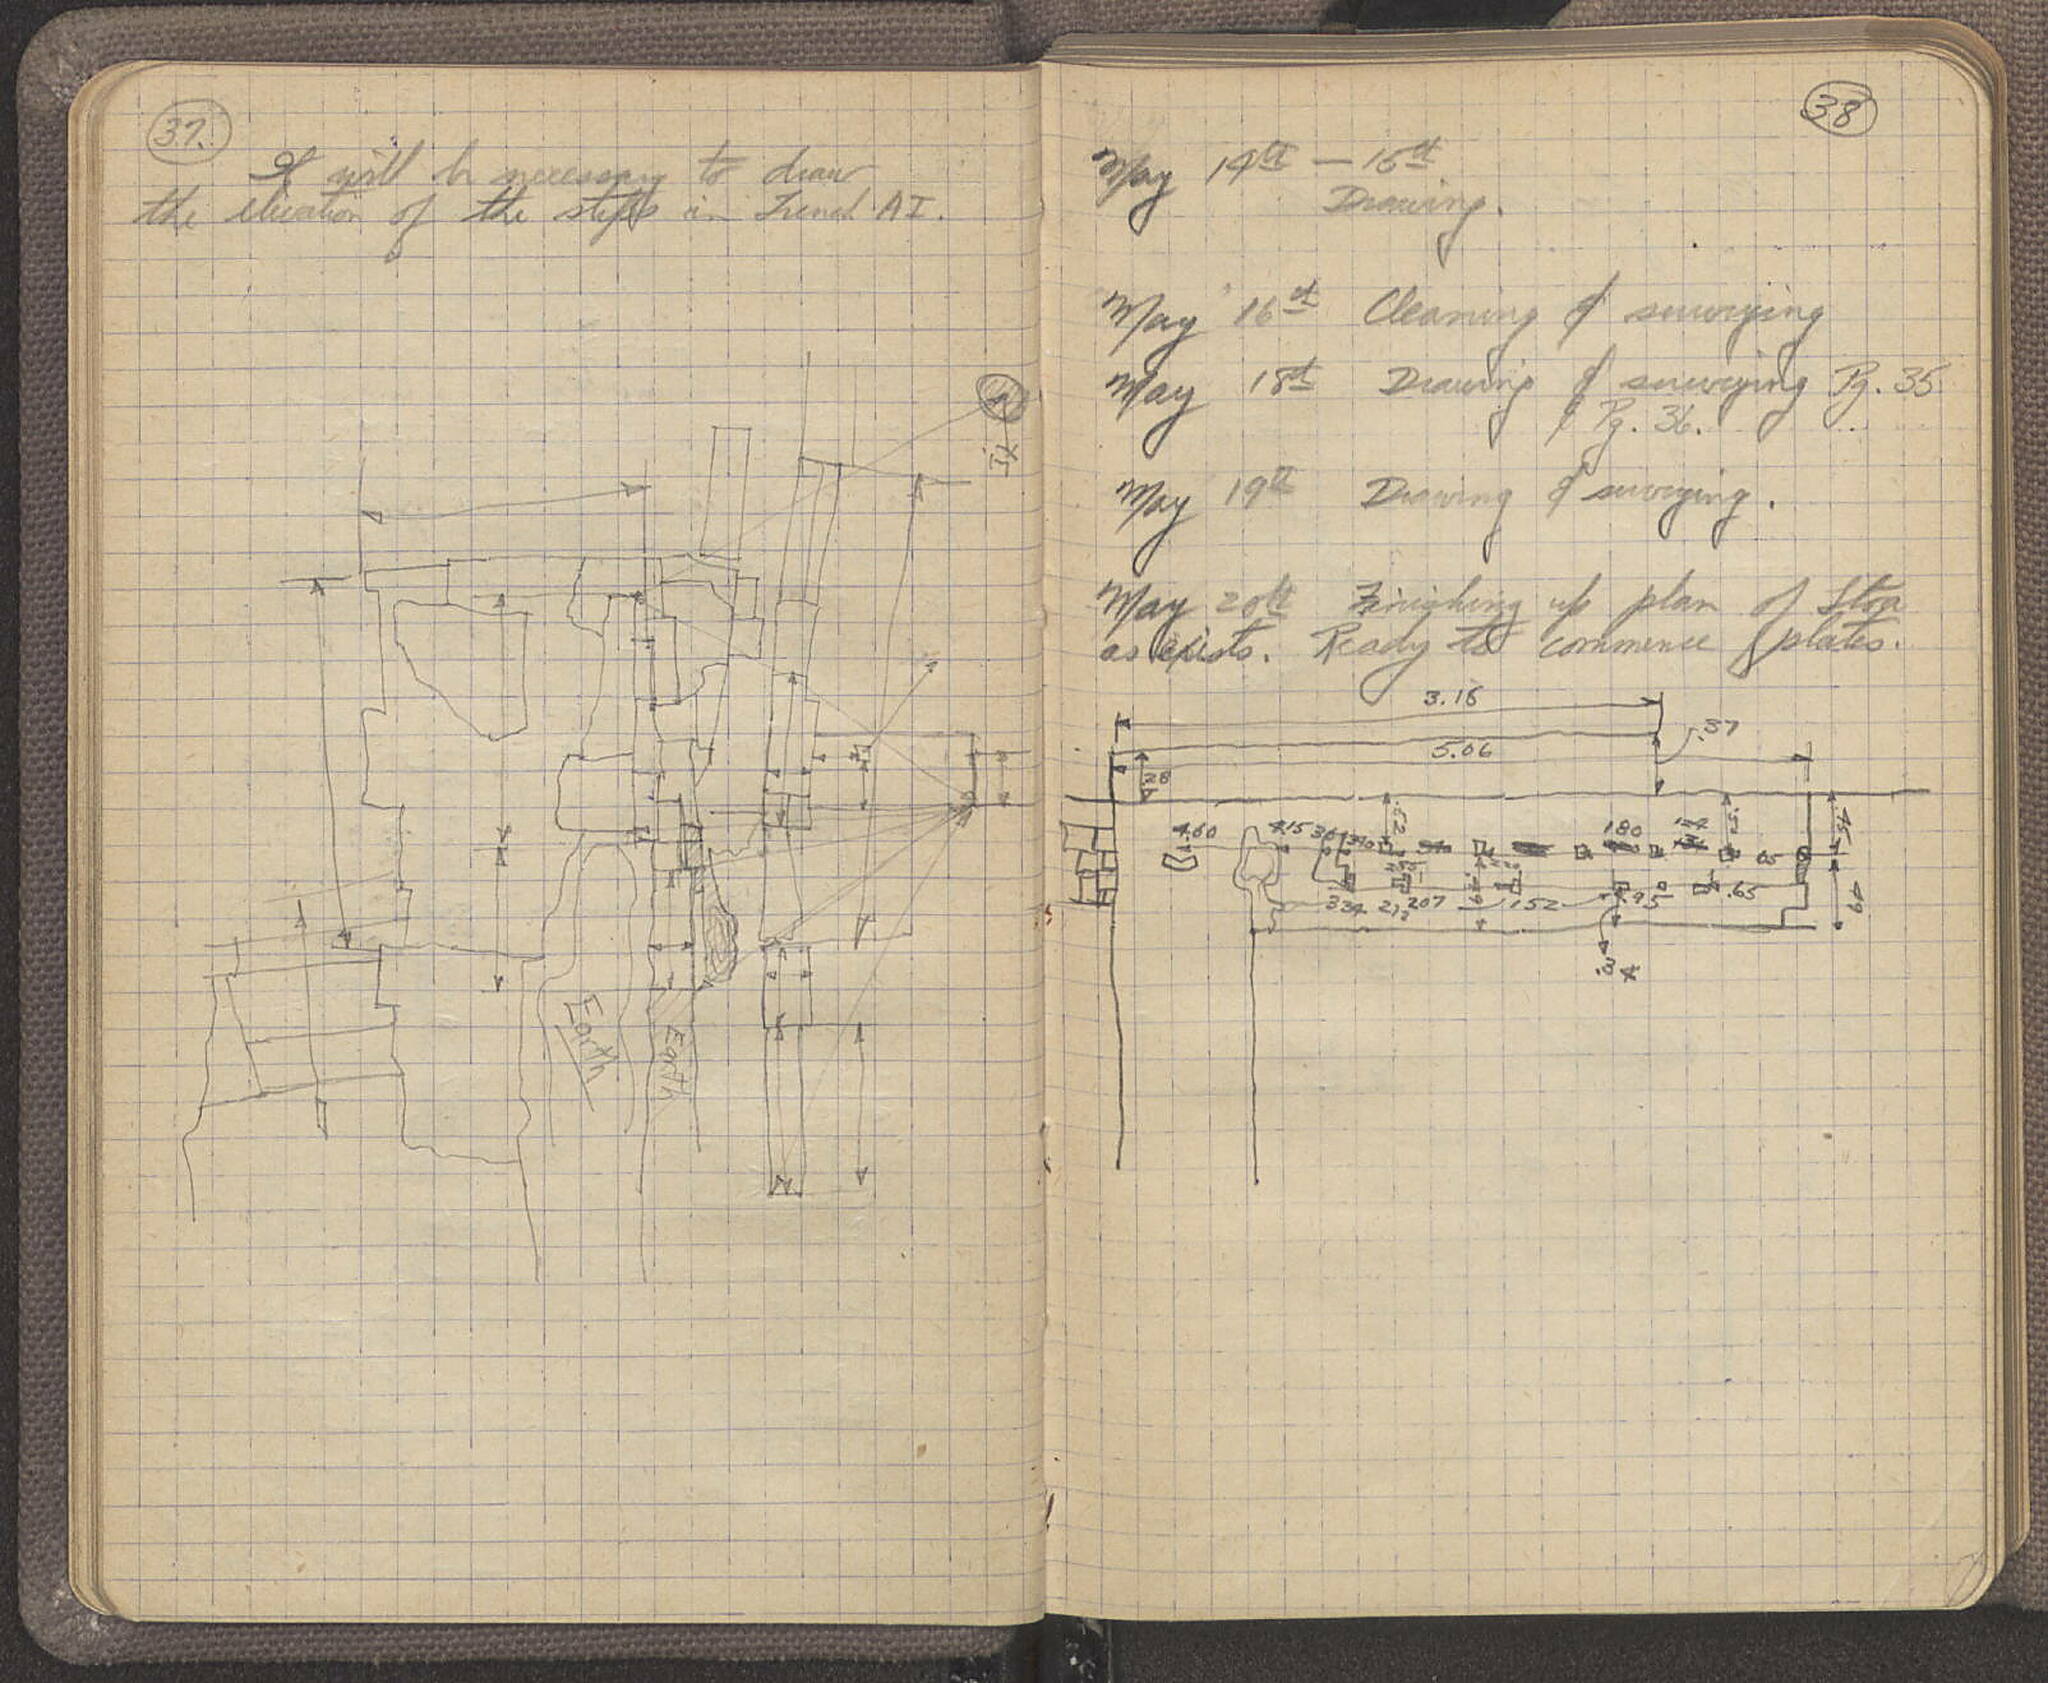 37.
It will be necessary to draw
the elevation of the steps in Trench AI.
IX
Earth
Earth
38
May 14th - 15th
Drawing.
May 16th Cleaning & surveying
May 18th Drawing & surveying Pg. 35
& Pg. 36.
May 19th Drawing & surveying.
May 20th Finishing up plan of Stoa
as exists. Ready to commence plates.
3.15
.37
5.06
.28
.52
.52
.45
4.60
4.15
180
.05
334
212
207
152
.95
.65
.49